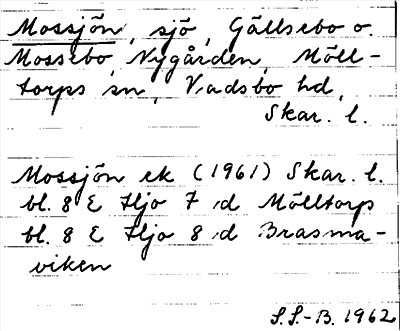 Mossjön, sjö, Gällsebo o.
Mossebo, Nygården, Möll-
torps sn, Vadsbo hd,
Skar. l.
Mossjön ek (1961) Skar. l.
bl. 8 E Hjo 7 d Mölltorp
bl. 8 E Hjo 8 d Brasma-
viken
S.S.-B. 1962